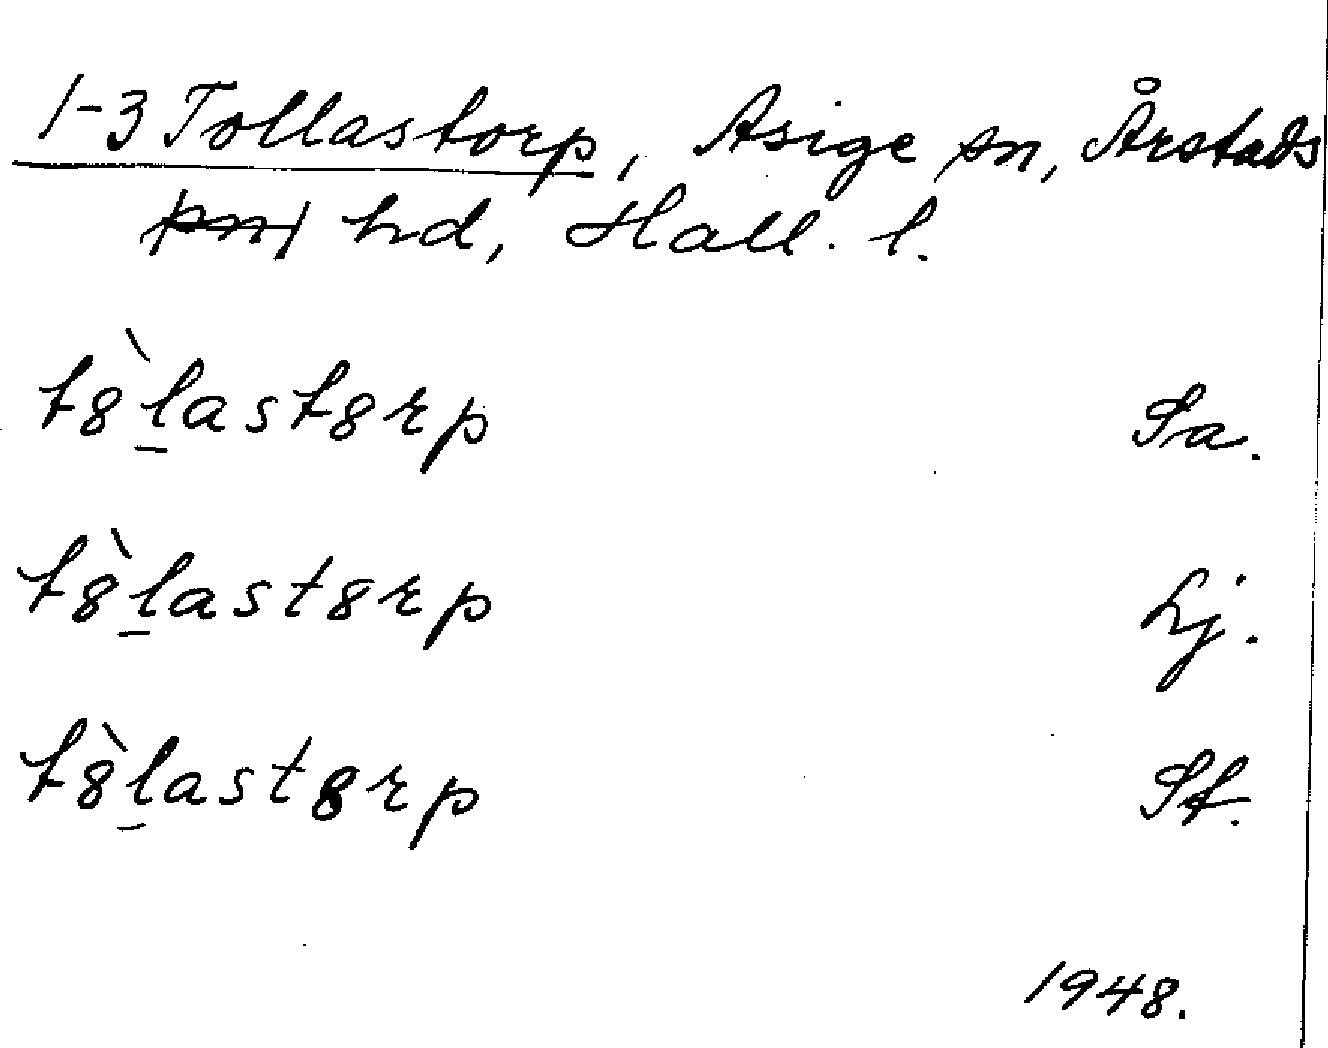 1-3 Tollastorp, Asige sn, Årstads
hd, Hall. l.
tȣ̀l̲astȣrp Sa.
tȣ̀l̲astȣrp Lj.
tȣ̀l̲astȣrp St.
1948.